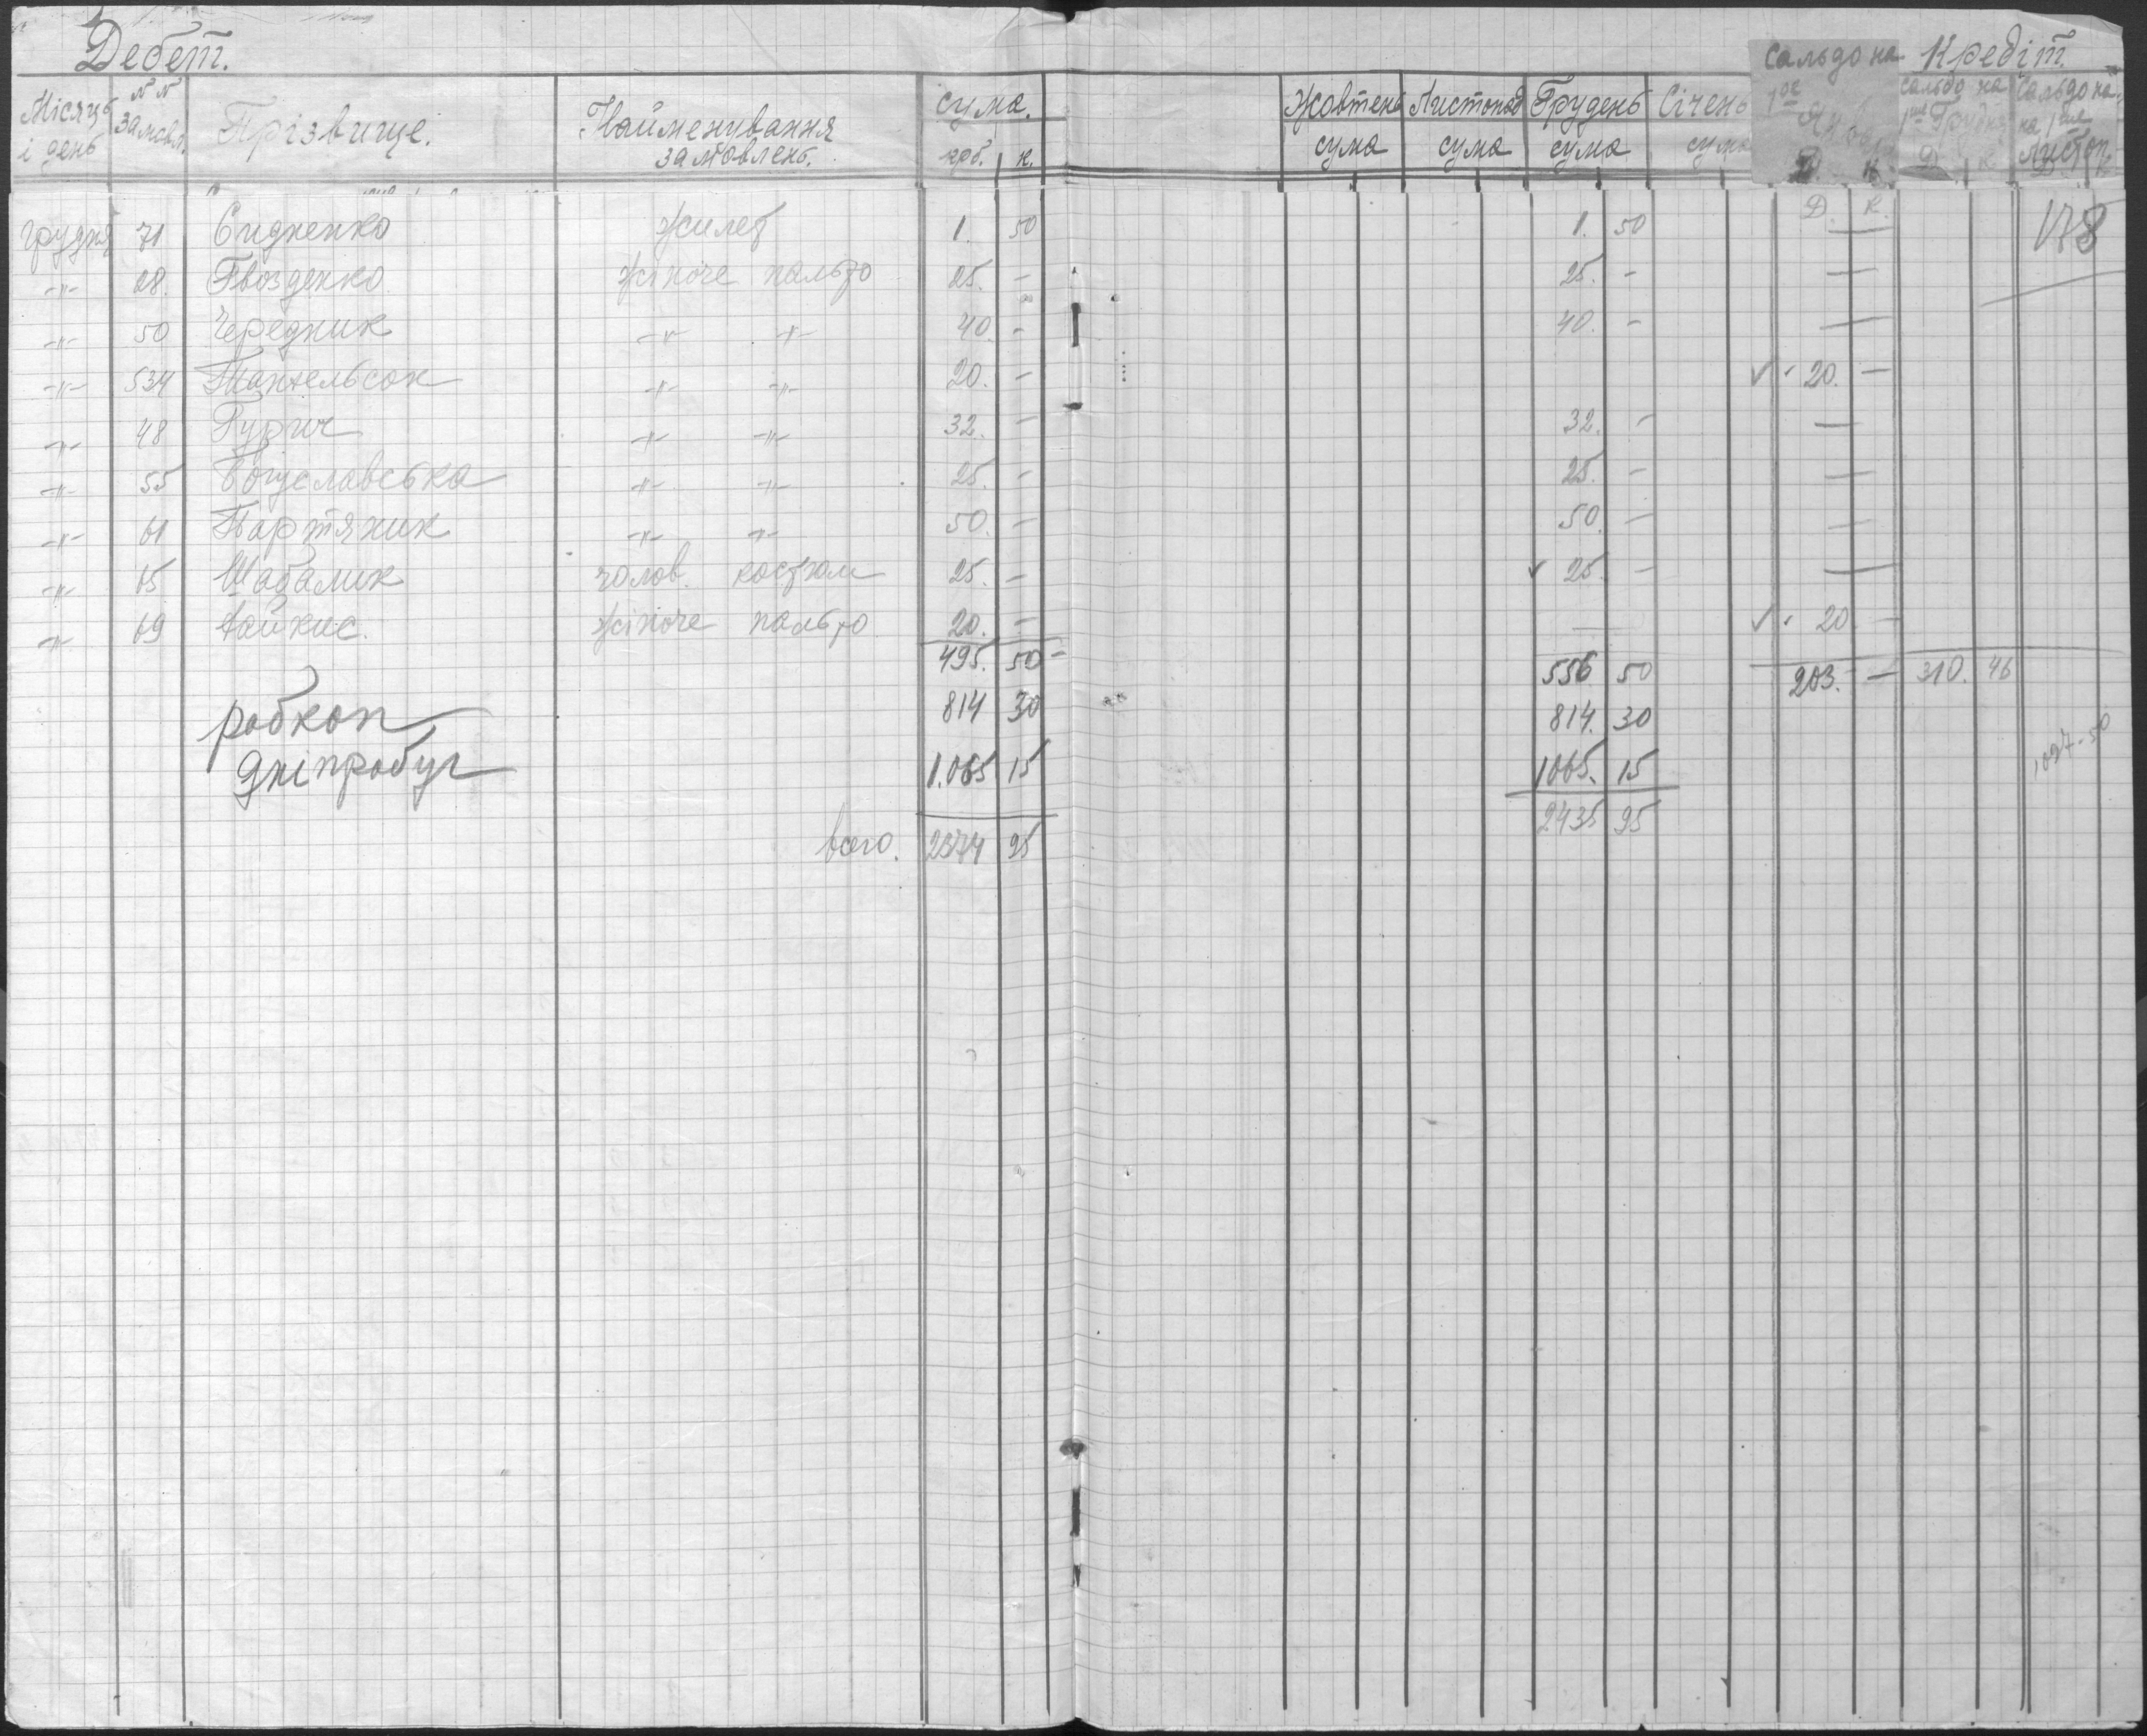 Дебет.
Сальдо на Кредіт.
Місяць і день
№№ замовл.
Прізвище.
Найменування замовлень.
сума.
крб. к.
Жовтень сума
Листопад сума
Грудень сума
Січень сума
1ое
Д К
Сальдо на 1ше Грудня
Д К
Сальдо на
на 1ше Листоп.
Д. К.
178
грудня 71 Сидненко Жилет 1. 50 1. 50 —
-"- 28. Гвозденко Жіноче пальто 25. - 25. - —
-"- 50 Чередник -"- -"- 40. - 40. - —
-"- 534 -"- -"- 20. - ✓ 20. —
-"- 48 Гурич -"- -"- 32. - 32. - —
-"- 55 Богуславська -"- -"- 25. - 25. - —
-"- 61 Партяник -"- -"- 50. - 50. - —
-"- 65 Шабалик чолов. костюм 25. - ✓ 25. - —
-"- 69 Жіноче пальто 20. - — ✓ 20. -
495. 50 556 50 203. — 310. 46
робкоп 814 30 814. 30
Дніпробуг 1.065 15 1065. 15
1097-50
2435 95
всего. 2374 95